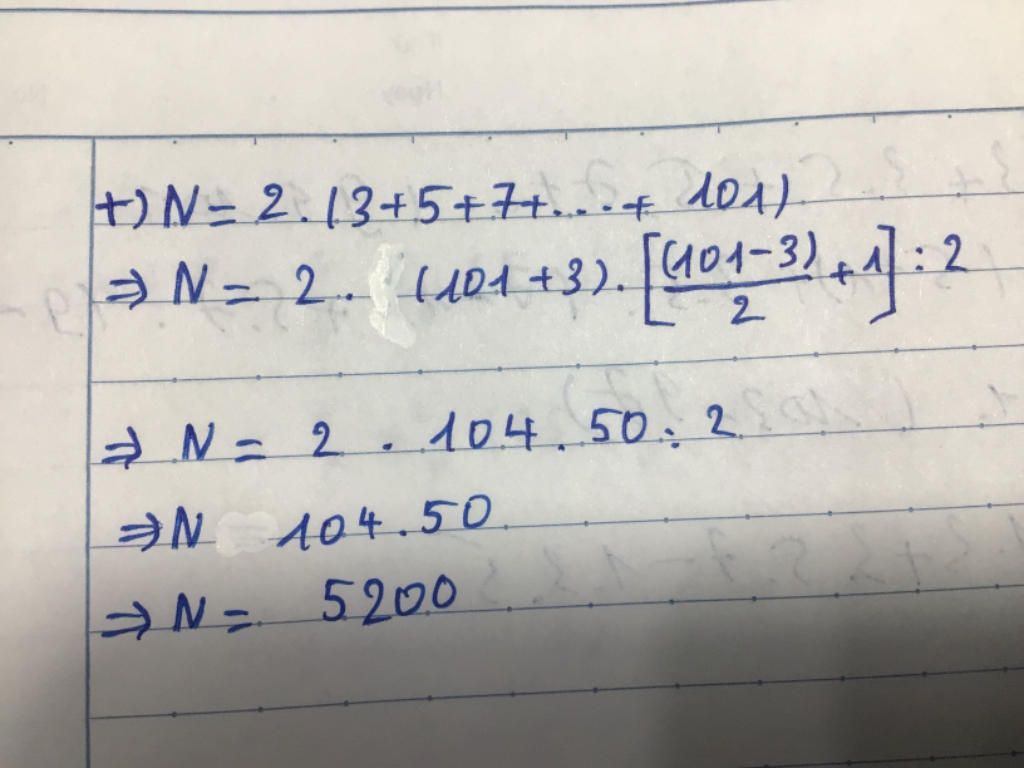 +) N = 2.(3+5+7+...+ 101)
=> N = 2. (101+3).[(101-3)/2 +1]:2
=> N = 2 . 104.50:2
=> N = 104.50
=> N = 5200